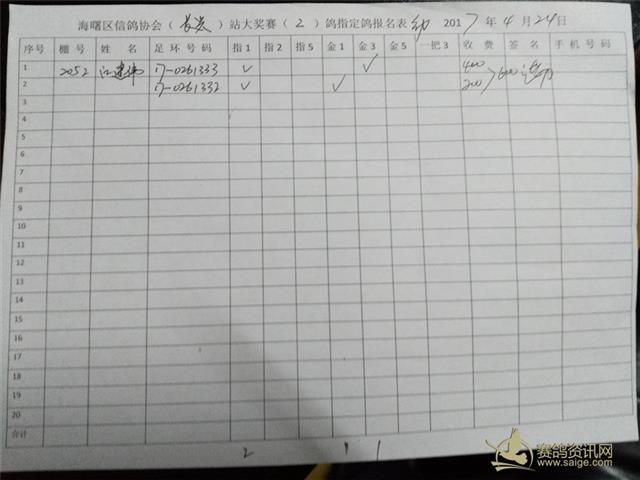 海曙区信鸽协会（长兴）站大奖赛（2）鸽指定鸽报名表 幼 2017年4月24日
序号 棚号 姓名 足环号码 指1 指2 指5 金1 金3 金5 一把3 收费 签名 手机号码
1 2052 江建伟 17-0261333 ✓ ✓ 400
2 17-0261332 ✓ ✓ 200 600
3
4
5
6
7
8
9
10
11
12
13
14
15
16
17
18
19
20
合计
2 1 1
赛鸽资讯网
www.saige.com